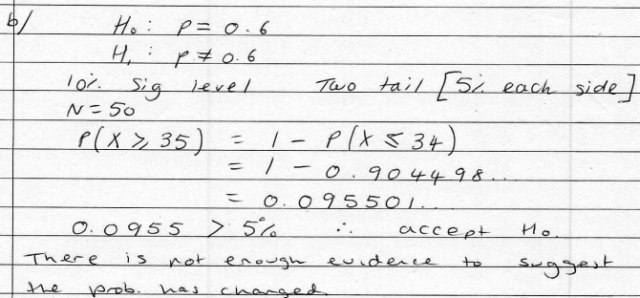 b/ H₀ : p = 0.6
H₁ : p ≠ 0.6
10% sig level Two tail [5% each side]
N = 50
P(X ⩾ 35) = 1 - P(X ≤ 34)
= 1 - 0.904498...
= 0.095501...
0.0955 > 5% ∴ accept H₀.
There is not enough evidence to suggest
the prob. has changed.